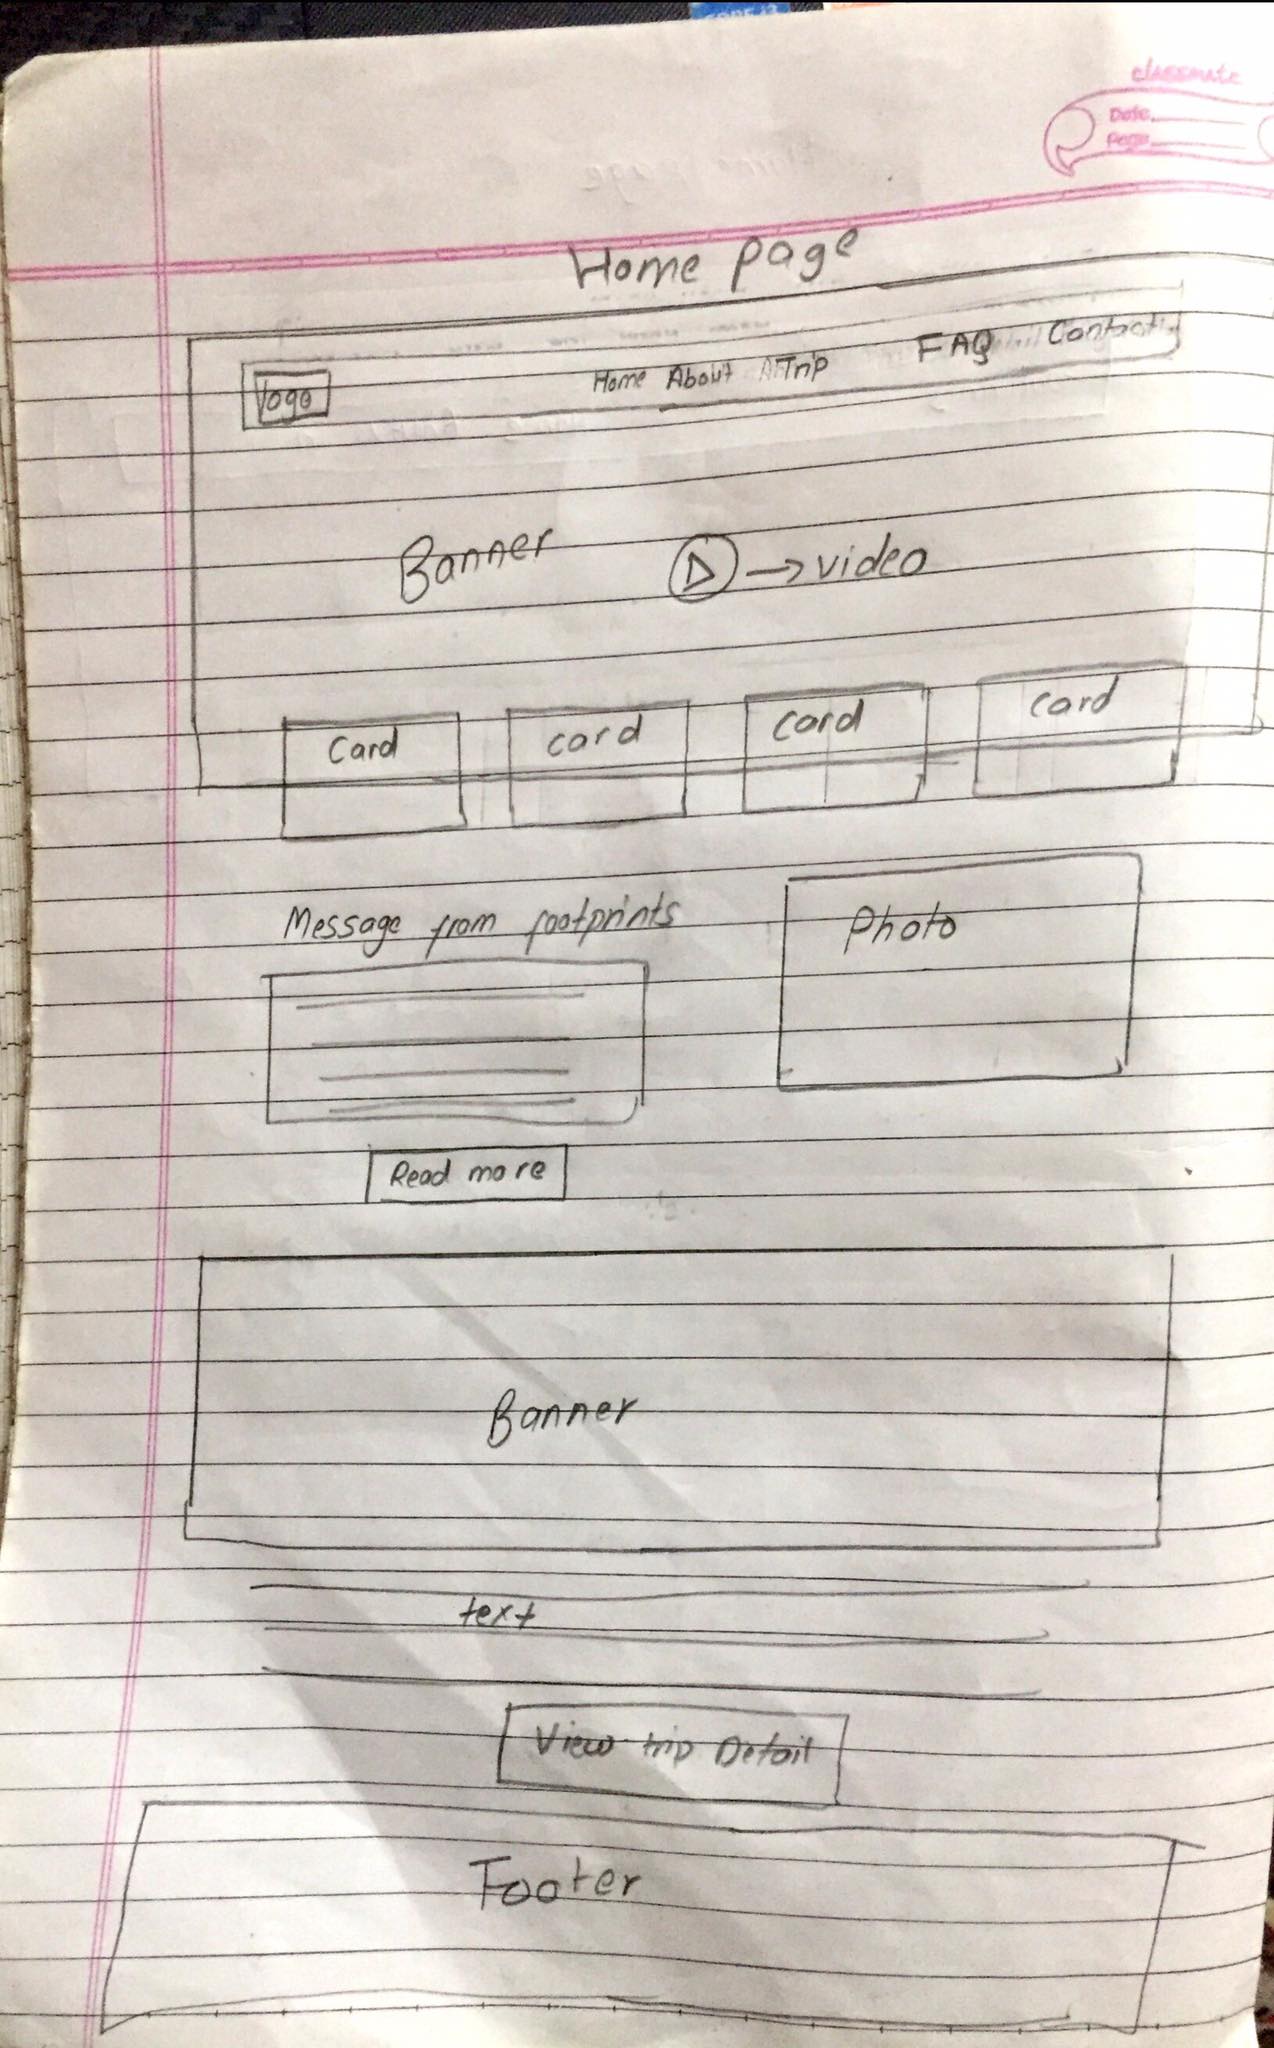 classmate
Date
Page
Home page
logo Home About Trip FAQ Contact
Banner → video
Card card card card
Message from footprints
Photo
Read more
Banner
text
View trip Detail
Footer